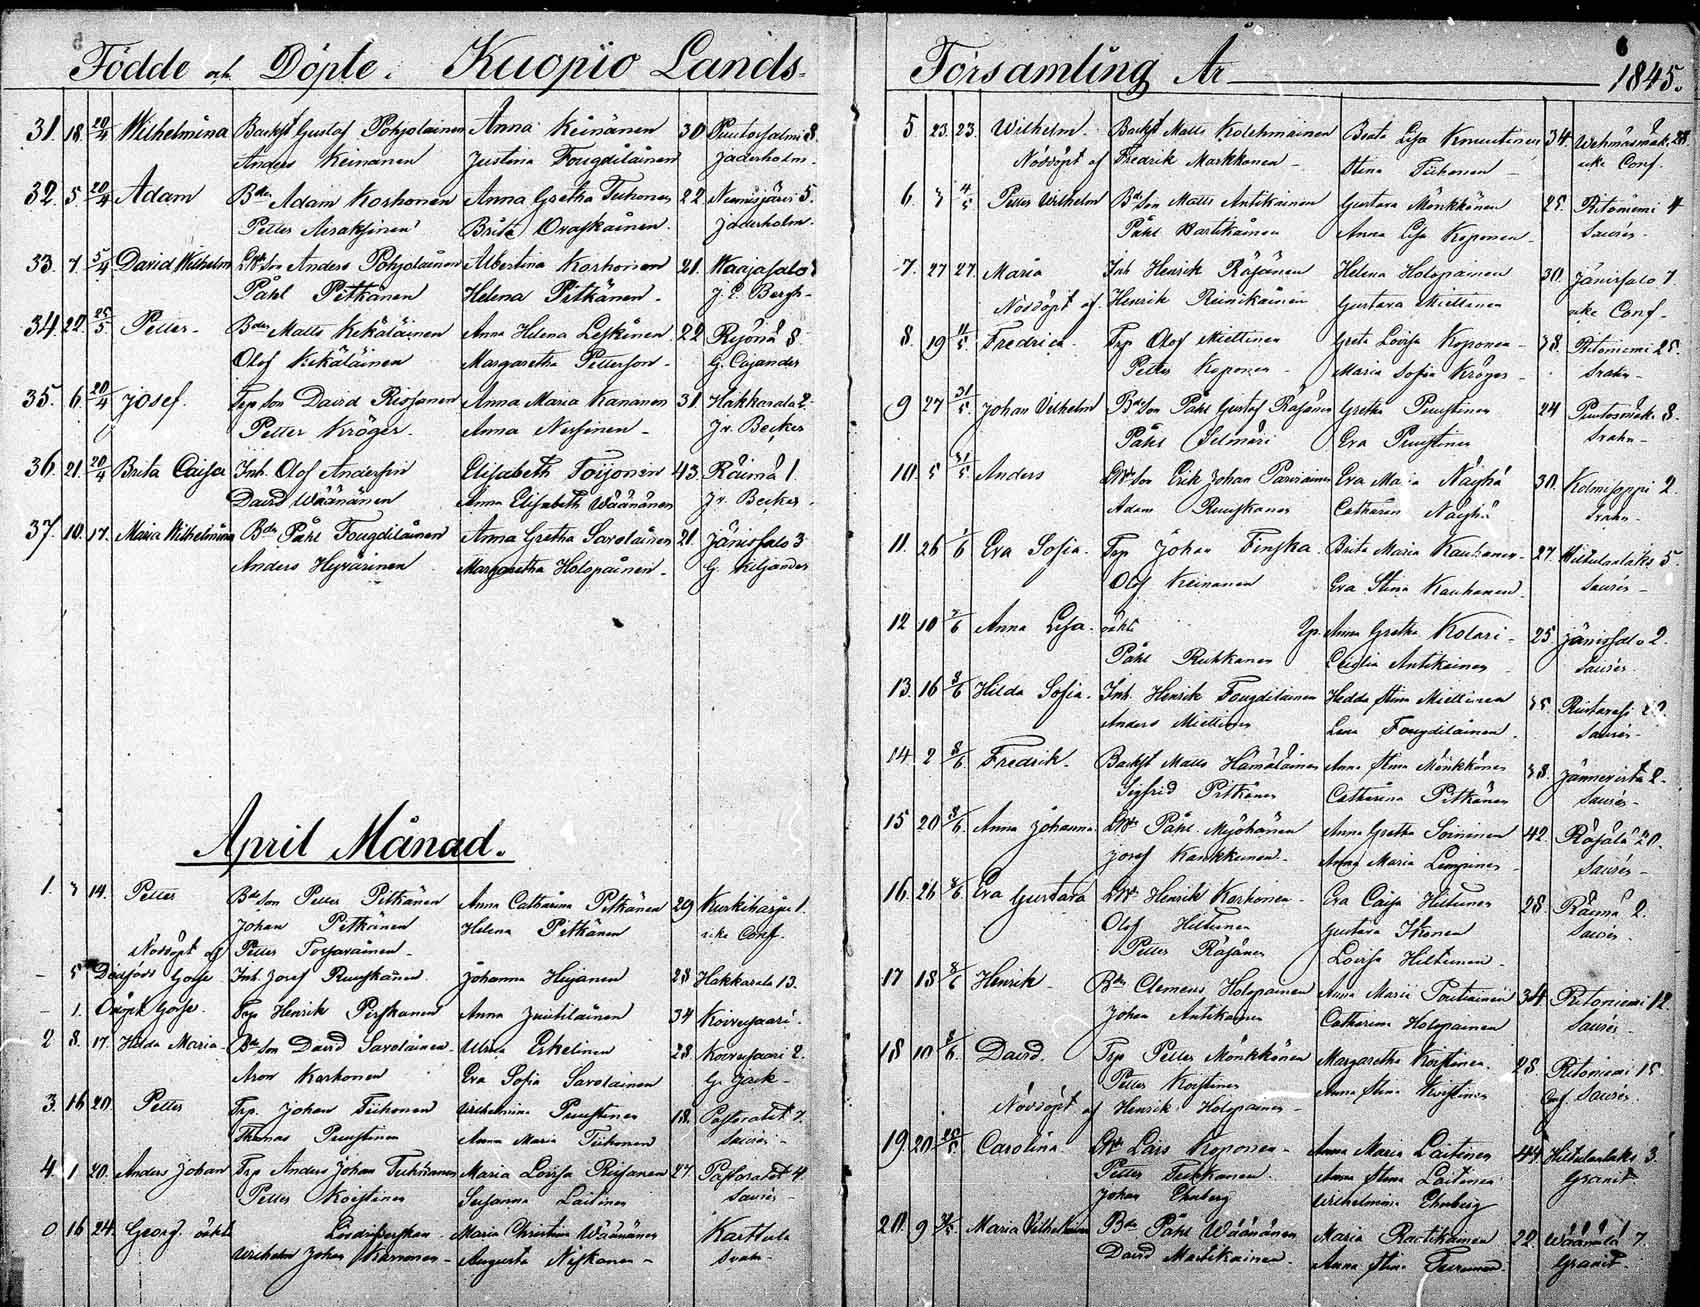 Födde och Döpte. Kuopio Lands-
31. 18. 20/4 Wilhelmina Backst Gustaf Pohjolainen Anna Keinänen 30
Anders Keinänen Justina Fougdilainen Jaderholm.
32. 5 20/4 Adam Bde Adam Korhonen Anna Gretha Tuhonen 22 5.
Petter Brita Ovaskainen. Jaderholm.
33. 7. 5/4 David Wilhelm Anders Pohjolainen Albertina Korhonen 21. Waajasalo
Påhl Pitkänen Helena Pitkänen. J. E. Bergh
34. 22. 25/5 Petter Bde Matts Kekäläinen Anna Helena Leskinen 22 8
Olof Kekäläinen Margaretha Petterson G. Cajander
35. 6. 20/4 Josef. Trp son David Rissanen Anna Maria Kananen 31. Hakkarala 2.
Petter Kröger. Anna J. v. Becker
36. 21. 20/4 Brita Caisa Inh. Olof Anderssin Elisabeth Toivonen 43. Räimä 1.
David Wäänänen Anna Elisabeth Wäänänen J. v. Becker.
37. 10. 17. Maria Wilhelmina Bde Påhl Fougdilainen Anna Gretha Savolainen 21. Jänissalo 3
Anders Hyvärinen Margaretha Holopainen. G. Kiljander
April Månad.
1. 3 14. Petter Bde Son Petter Pitkänen Anna Catharina Pitkänen 29 Kurkiharju 1.
Johan Pitkänen Helena Pitkänen icke Conf.
Nöddöpt af Petter
5 Dödfödt Gosse. Inh. Josef Ruuskanen. Johanna Heijanen 28 Hakkarala 13.
1. Odöpt Gosse. Trp Henrik Pirskanen Anna Juutilainen 34 Koivusaari.
2 8. 17. Hilda Maria Bde Son David Savolainen. Ulrica Eskelinen 28 Koivusaari 2.
Aron Korhonen Eva Sofia Savolainen G. Jack
3. 16 20. Petter Trp. Johan Tiihonen Wilhelmina Puustinen 18. Pastoratet 7.
Thomas Puustinen Anna Maria Tiihonen Saurés
4. 1 20. Anders Johan Trp Anders Johan Maria Lovisa Rissanen 27. Pastoratet 4
Petter Koistinen Susanna Laitinen Saurés
0 16 24. Georg. oäkta Maria Christina Wäänänen Karttula
Wilhelm Johan Karvonen Augusta Niskanen Svahn
Församling År 1845.
5 23. 23. Wilhelm. Backst Matts Kolehmainen Beata Lisa Knuutinen 34. 28.
Nöddöpt af Fredrik Markkanen Stina Tiihonen icke Conf.
6. 3 4/5 Petter Wilhelm Bde Son Matts Antikainen Gustava Mönkkönen 25. Ritoniemi 4
Påhl Hartikainen Anna Lisa Koponen Saurés
7. 27 27. Maria Inh Henrik Räsänen Helena Holopainen 30. Jänissalo 7
Nöddöpt af Henrik Reinikainen Gustava Miettinen icke Conf
8. 19 11/5 Fredrica Trp Olof Miettinen Greta Lovisa Koponen 38. Ritoniemi 25.
Petter Koponen Maria Sofia Kröger Svahn
9 27 31/5 Johan Wilhelm Bde Son Påhl Gustaf Räsänen Gretha Puustinen 24 8.
Påhl Eva Puustinen Svahn
10. 5 31/5 Anders Son Erik Johan Parviainen Eva Maria 30. Kolmisoppi 2
Adam Ruuskanen Catharina Svahn
11. 26 1/6 Eva Sofia. Trp Johan Finska Brita Maria Kauhanen 27 Hiltulanlaks 5.
Olof Keinänen Eva Stina Kauhanen. Saurés
12 10 7/6 Anna Lisa. oäkta Anna Gretha Kolari 25. Jänissalo 2.
Påhl Ruhkanen Cecilia Antikainen Saurés
13. 16 8/6 Hilda Sofia. Inh. Henrik Fougdilainen Hedda Stina Miettinen 35
Anders Miettinen Lena Fougdilainen. Saurés
14. 2 8/6 Fredrik. Backst Matts Hämäläinen Anna Stina Mönkkönen 38. Jännevirta 2.
Sigfrid Pitkänen Catharina Pitkänen Saurés
15 20 8/6 Anna Johanna. Påhl Anna Gretha Soininen 42. 20.
Josef Kankkunen Anna Maria Lempinen Saurés
16. 26 8/6 Eva Gustava Henrik Korhonen Eva Caisa Hiltunen 28 Räimä 2.
Olof Hiltunen Gustava Ikonen Saurés.
Petter Räsänen Lovisa Hiltunen
17 18 8/6 Henrik Bde Clemens Holopainen Anna Maria 34 Ritoniemi 12.
Johan Antikainen Catharina Holopainen Saurés
18 10 8/6. David. Trp Petter Mönkkönen Margaretha Koistinen. 28. Ritoniemi 15
Petter Koistinen Anna Stina Koistinen Saurés.
Nöddöpt af Henrik Holopainen
19. 20 Carolina Lars Koponen Anna Maria Laitinen 44. Hiltulanlaks 3.
Petter Anna Stina Laitinen Granit
Johan Ehnberg Wilhelmina Ehnberg
20. 9 Maria Wilhelmina Bde Påhl Wäänänen Maria 22. Wäänälä 7.
David Martikainen Anna Stina Granit